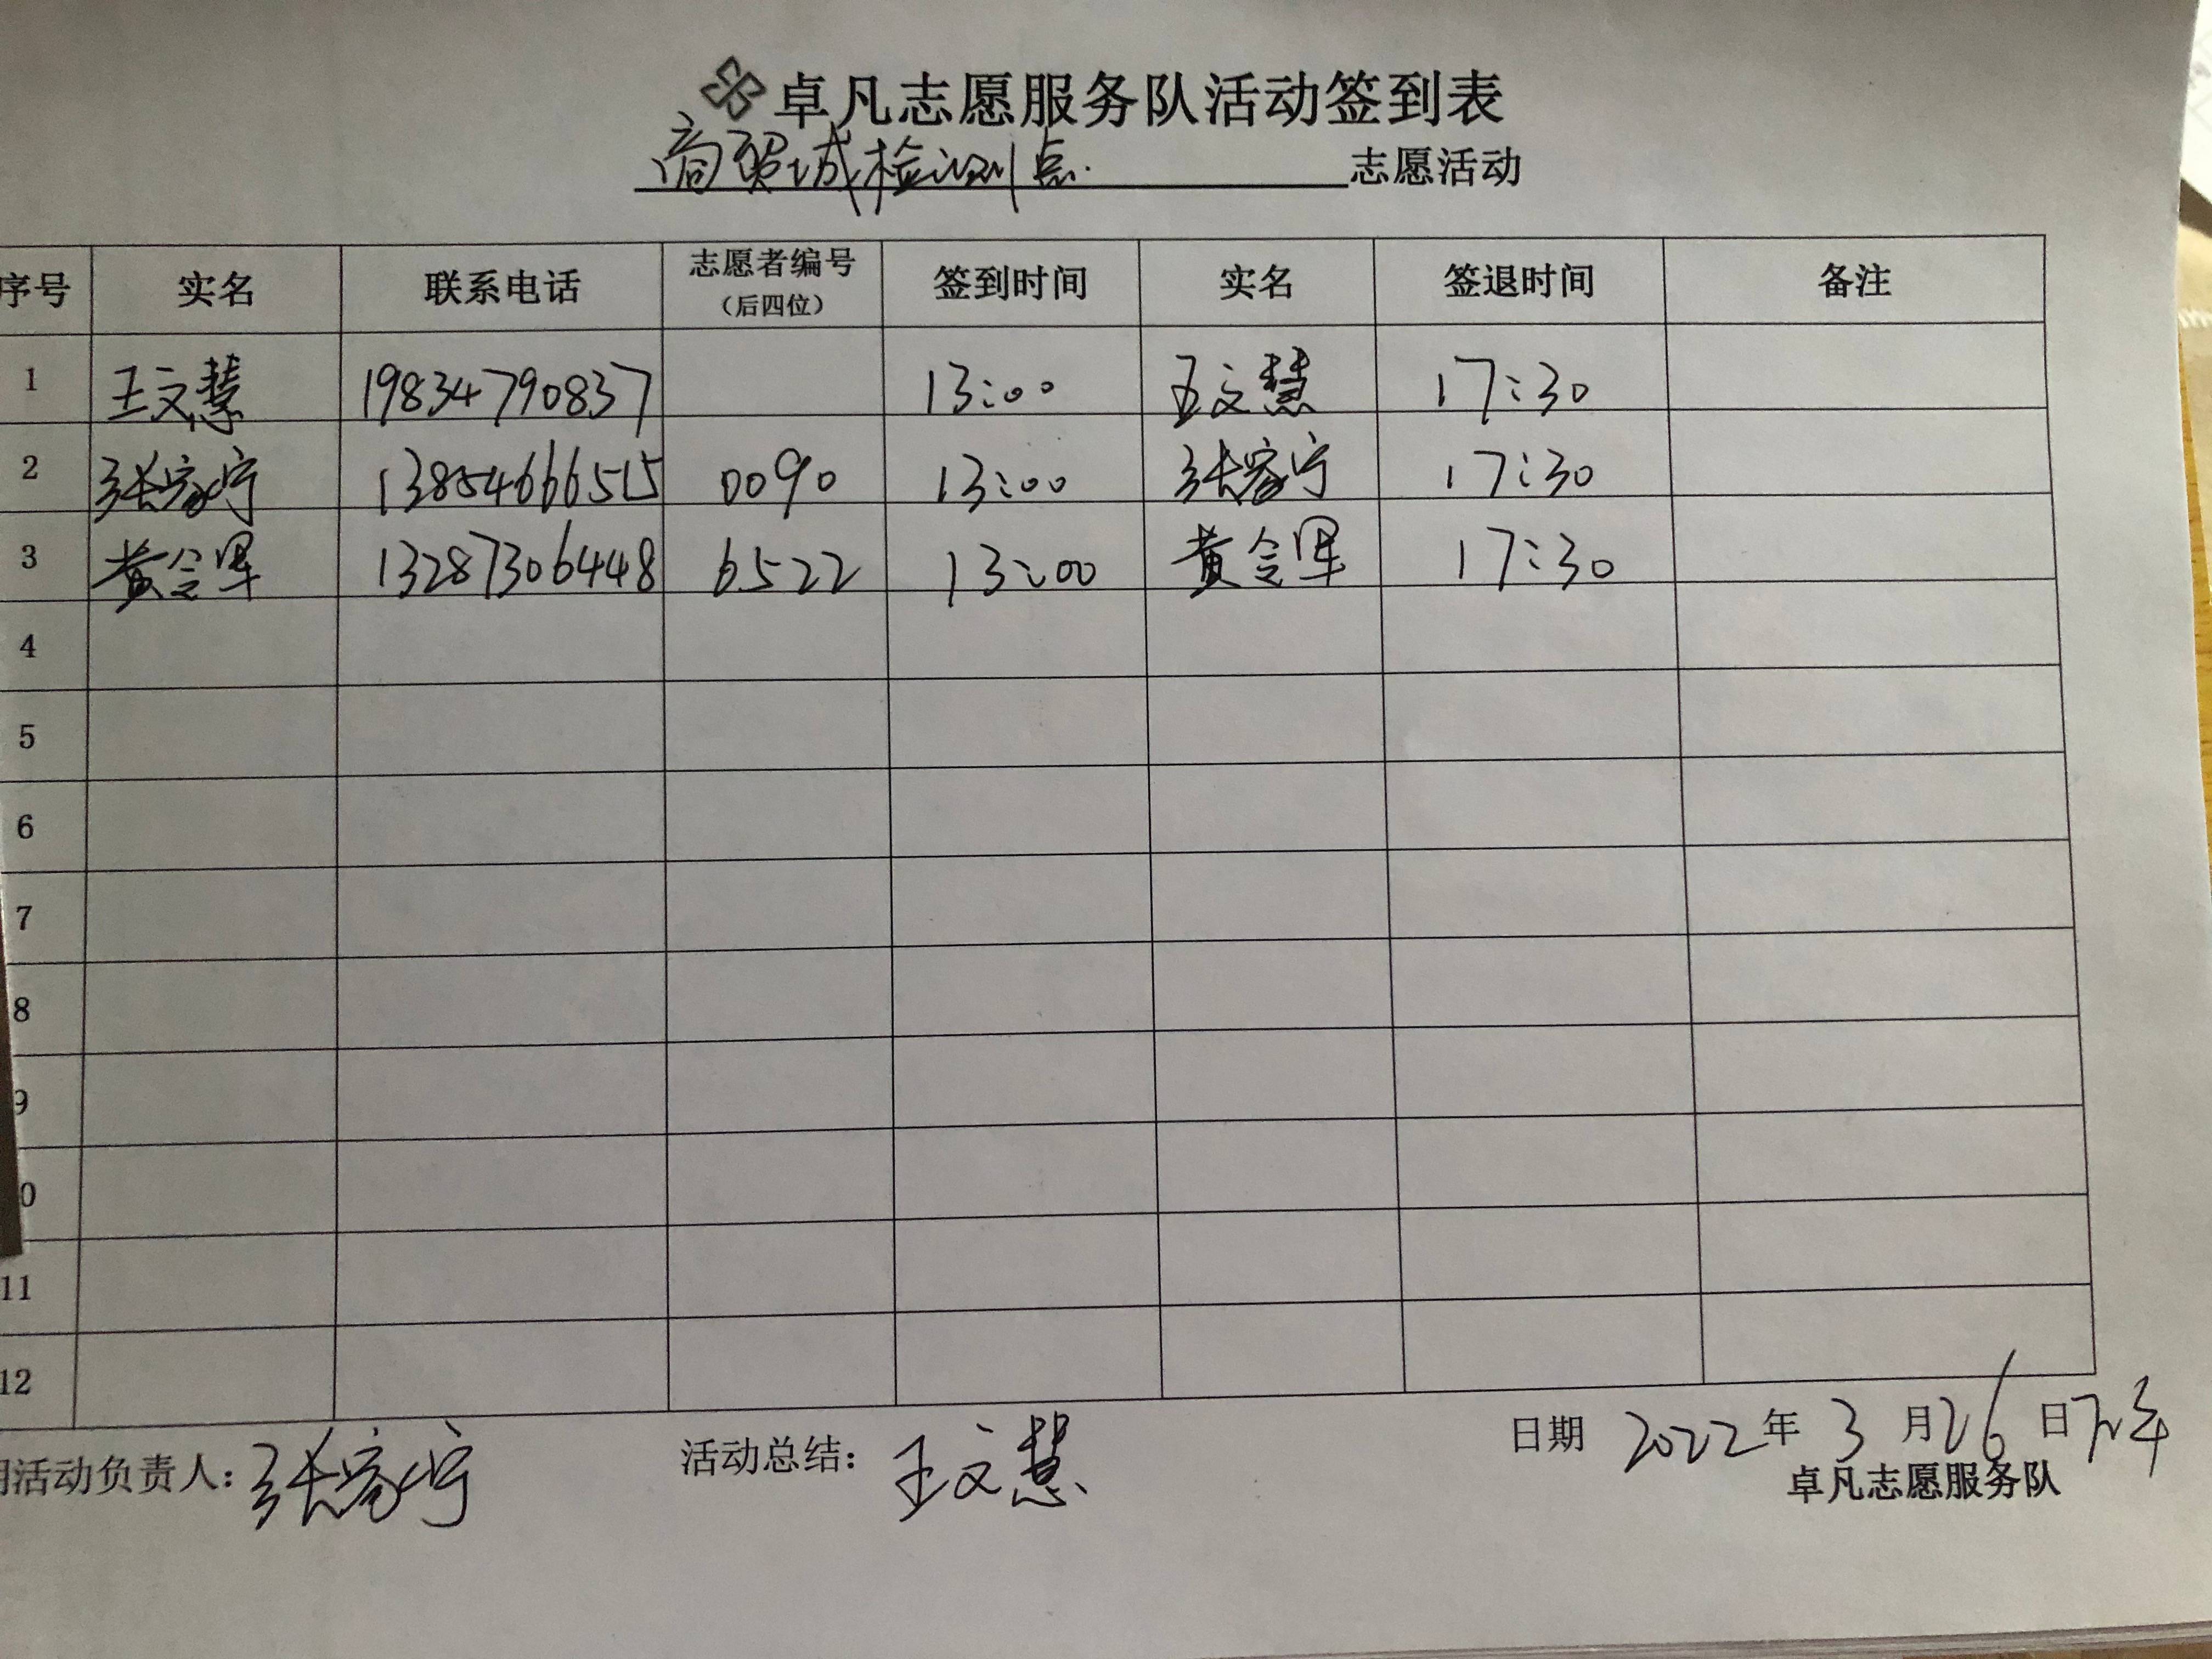 卓凡志愿服务队活动签到表
商贸城检测点. 志愿活动
序号 实名 联系电话 志愿者编号（后四位） 签到时间 实名 签退时间 备注
1 王文慧 19834790837 13:00 王文慧 17:30
2 张家宁 13854666515 0090 13:00 张家宁 17:30
3 黄令军 13287306448 6522 13:00 黄令军 17:30
4
5
6
7
8
9
0
11
12
活动负责人：张家宁 活动总结：王文慧 日期 2022年3月26日下午
卓凡志愿服务队